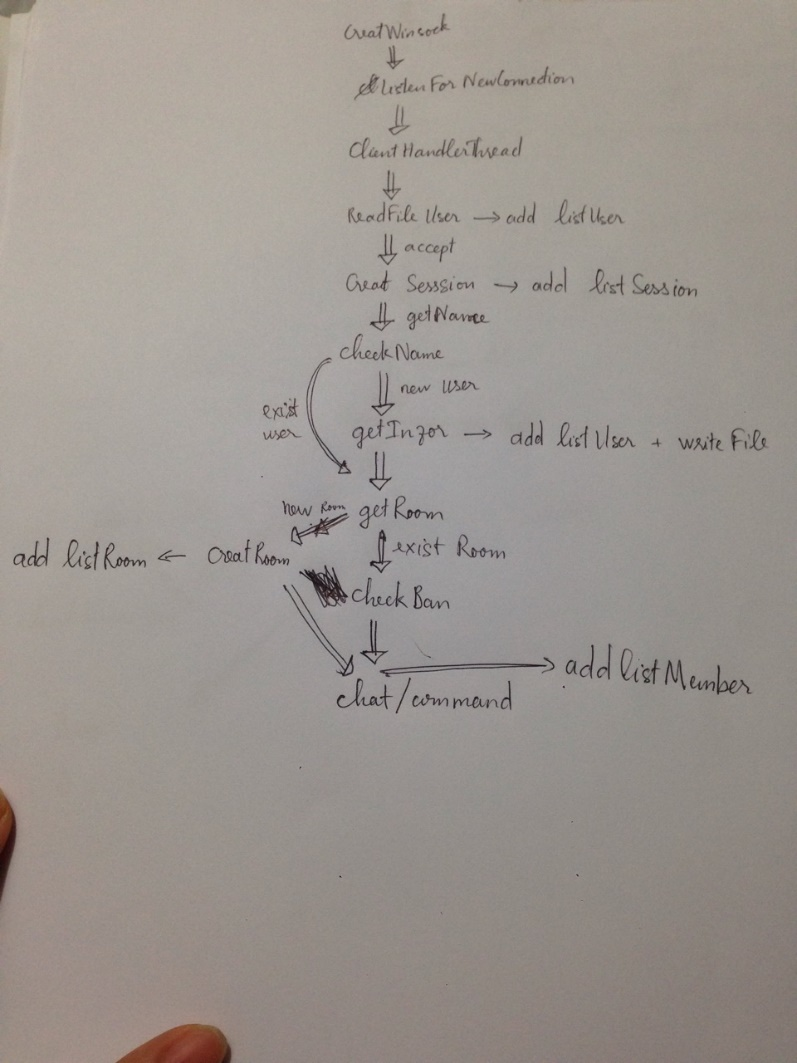 CreatWinsock
ListenForNewConnedion
ClientHandlerThread
ReadFile User → add listUser
accept
Creat Sesssion → add listSession
getName
checkName
new user
exist
user
getInfor → add listUser + write File
new Room
getRoom
add listRoom ← CreatRoom
exist Room
checkBan
add listMember
chat/command